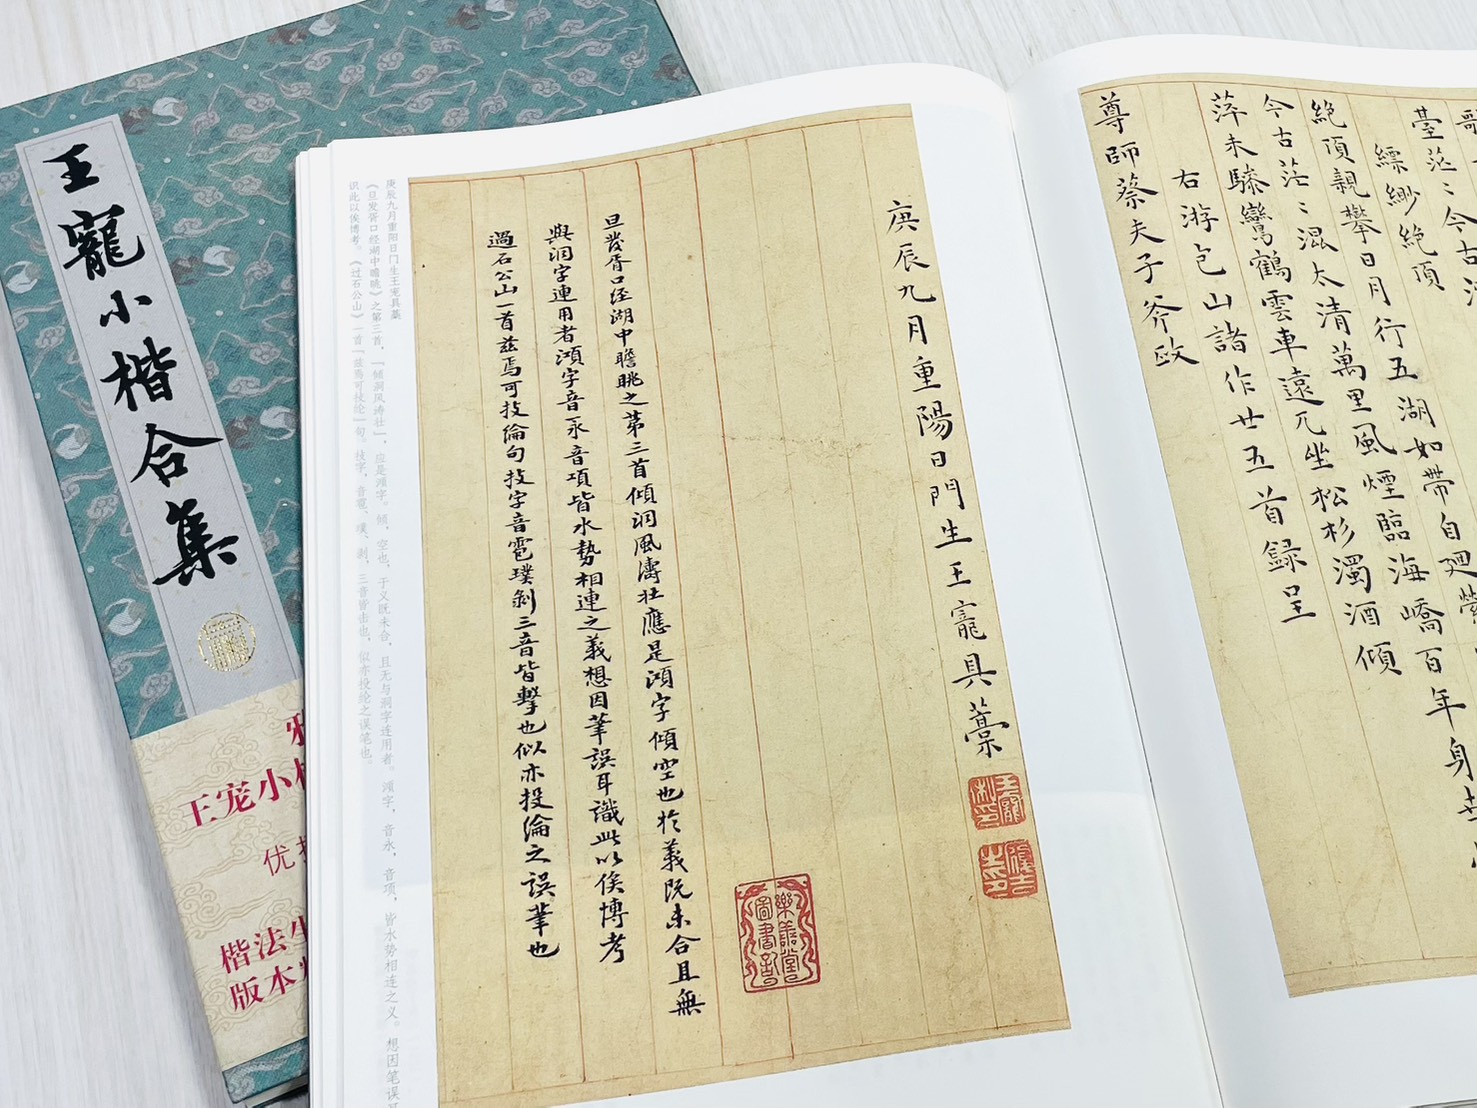 王寵小楷合集
王宠小楷
优
楷法生
版本
歌
臺茫〻今古
縹緲絕頂
絕頂親攀日月行五湖如帶自迴縈
今古茫〻混太清萬里風煙臨海嶠百年身世
萍未驂鸞鶴雲車遠兀坐松杉濁酒傾
右游包山諸作廿五首録呈
尊師蔡夫子斧政
庚辰九月重陽日門生王寵具藁
樂善堂圖書記
旦發胥口徑湖中瞻眺之第三首傾洞風濤壯應是澒字傾空也於義既未合且無
與洞字連用者澒字音永音項皆水勢相連之義想因筆誤耳識此以俟博考
過石公山一首茲焉可技綸句技字音雹璞剝三音皆擊也似亦投綸之誤筆也
庚辰九月重阳日门生王宠具藁
《旦发胥口经湖中瞻眺》之第三首，「倾洞风涛壮」，应是澒字。倾，空也，于义既未合，且无与洞字连用者。澒字，音永，音项，皆水势相连之义。想因笔误耳
识此以俟博考。《过石公山》一首「兹焉可技纶」句。技字，音雹、璞、剥，三音皆击也，似亦投纶之误笔也。